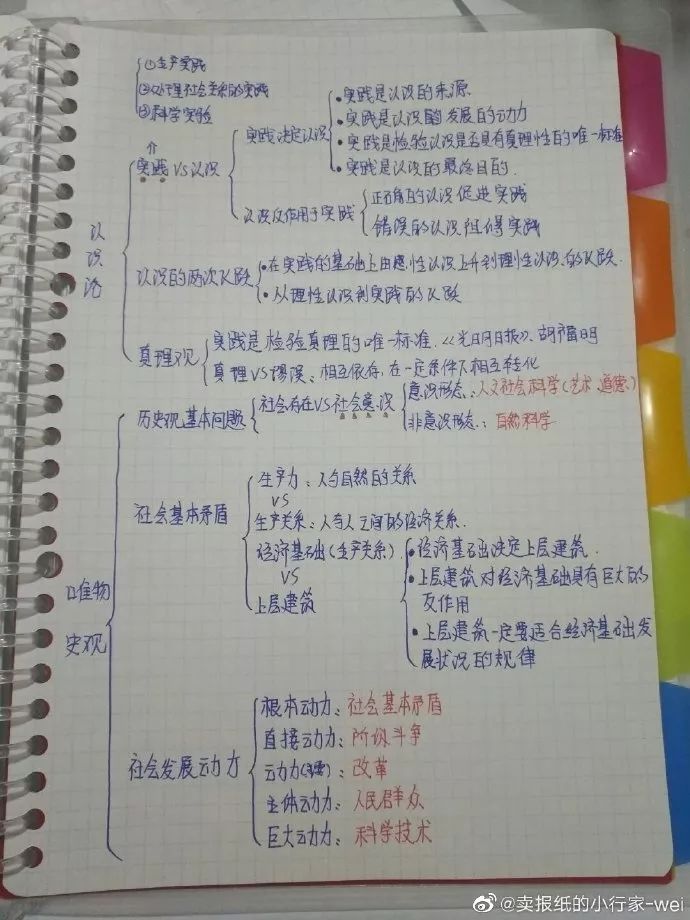 ①生产实践
②处理社会关系的实践
③科学实验
实践决定认识
• 实践是认识的来源
• 实践是认识发展的动力
• 实践是检验认识是否具有真理性的唯一标准
• 实践是认识的最终目的.
实践 VS 认识
认识反作用于实践
正确的认识促进实践
错误的认识阻碍实践
认识论
认识的两次飞跃
• 在实践的基础上由感性认识上升到理性认识的飞跃.
• 从理性认识到实践的飞跃
真理观
实践是检验真理的唯一标准.《光明日报》、胡福明
真理VS谬误、相互依存,在一定条件下相互转化
历史观基本问题
社会存在VS社会意识
意识形态:人文社会科学(艺术、道德)
非意识形态:自然科学
社会基本矛盾
生产力:人与自然的关系
VS
生产关系:人与人之间的经济关系.
经济基础(生产关系)
VS
上层建筑
• 经济基础决定上层建筑.
• 上层建筑对经济基础具有巨大的
反作用
• 上层建筑一定要适合经济基础发
展状况的规律
唯物
史观
社会发展动力
根本动力:社会基本矛盾
直接动力:阶级斗争
动力力(重要):改革
主体动力:人民群众
巨大动力:科学技术
@卖报纸的小行家-wei